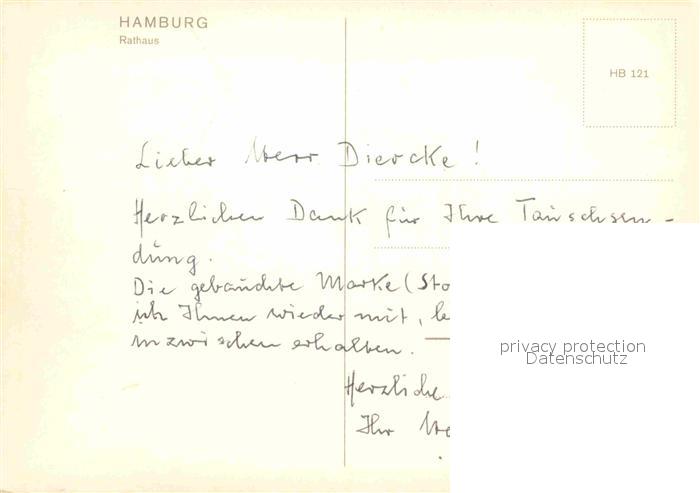 HAMBURG
Rathaus
HB 121
Lieber Herr Diercke!
Herzlichen Dank für Ihre Tauschsen-
dung.
Die Marke (Sto
ich Ihnen wieder mit,
inzwischen erhalten.
privacy protection
Datenschutz
Herzliche
Ihr